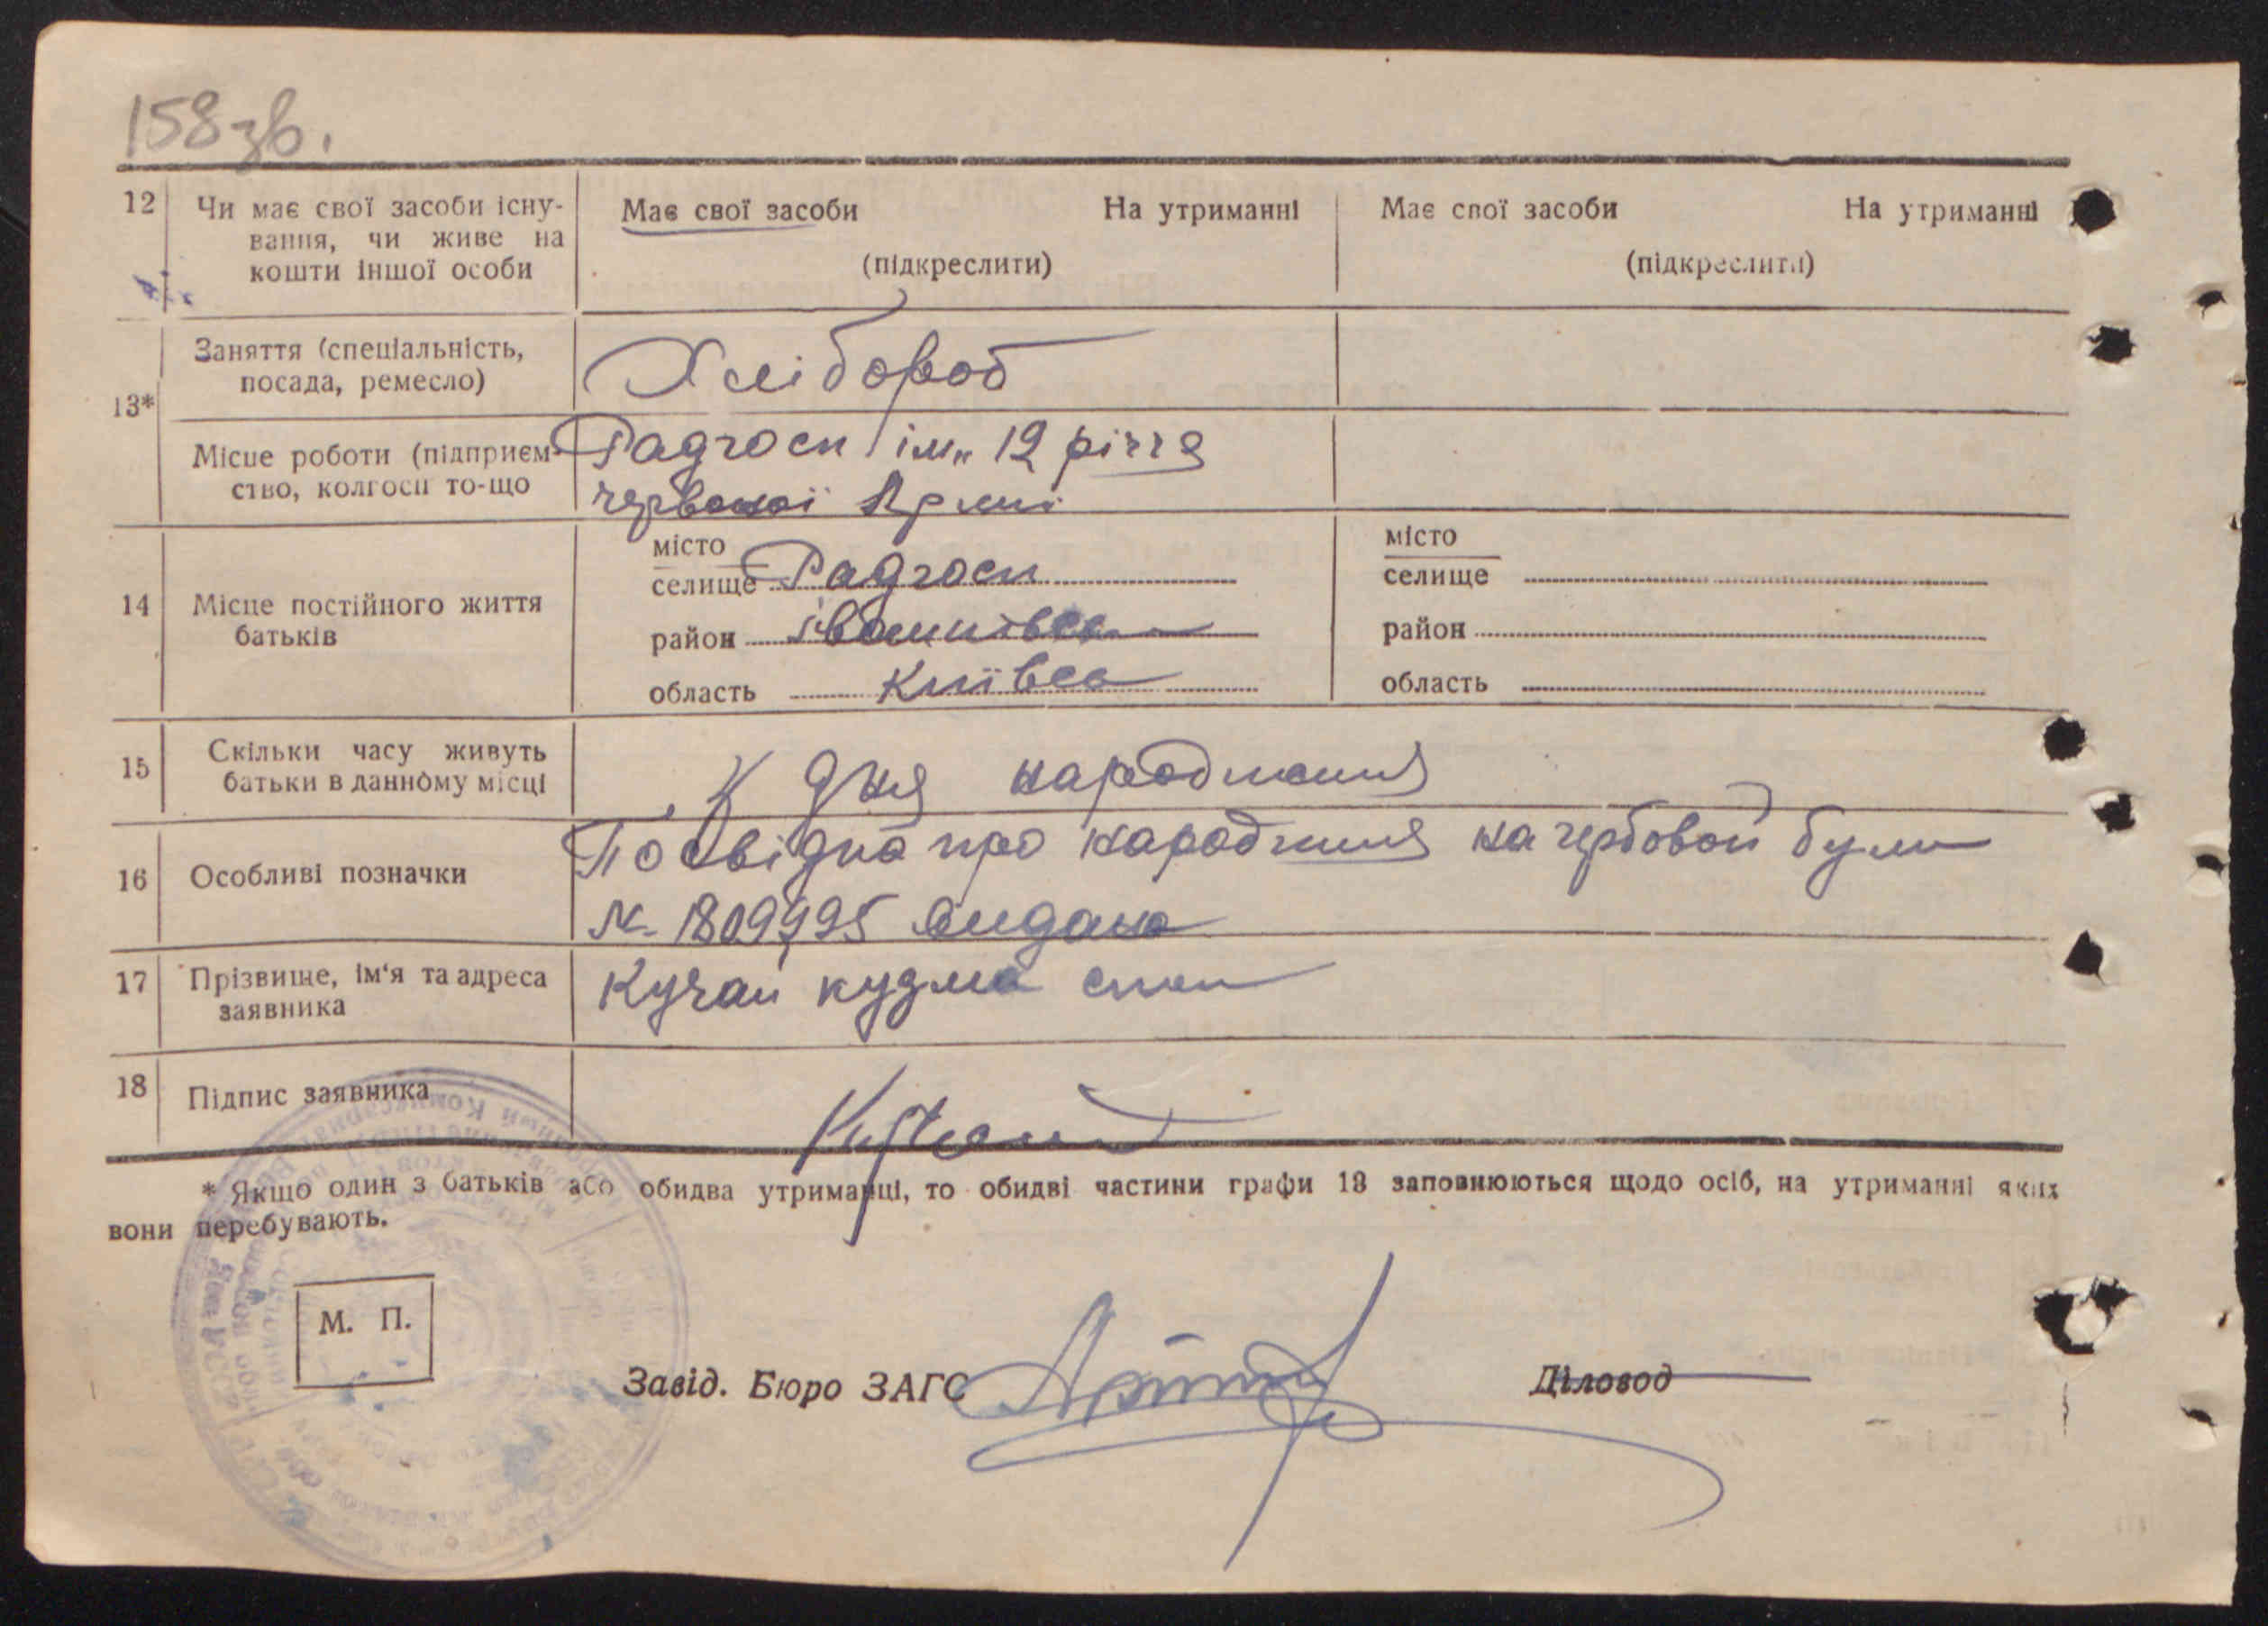 158 зв.
12 Чи має свої засоби існу- Має свої засоби На утриманні Має свої засоби На утриманні
вання, чи живе на
кошти іншої особи (підкреслити) (підкреслити)
Заняття (спеціальність, Хлібороб
посада, ремесло)
13*
Місце роботи (підприєм- Радгосп ім. 12 річчя
ство, колгосп то-що червоної Армії
місто місто
селище Радгосп селище
14 Місце постійного життя
батьків район район
область Київськ область
15 Скільки часу живуть
батьки в данному місці З дня народження
16 Особливі позначки Посвідка про народження на гербовой бум
№ 1809995 видана
17 Прізвище, ім'я та адреса Кучан кузма
заявника
18 Підпис заявника
* Якщо один з батьків або обидва утриманці, то обидві частини графи 13 заповнюються щодо осіб, на утриманні яких
вони перебувають.
М. П.
Завід. Бюро ЗАГС Діловод